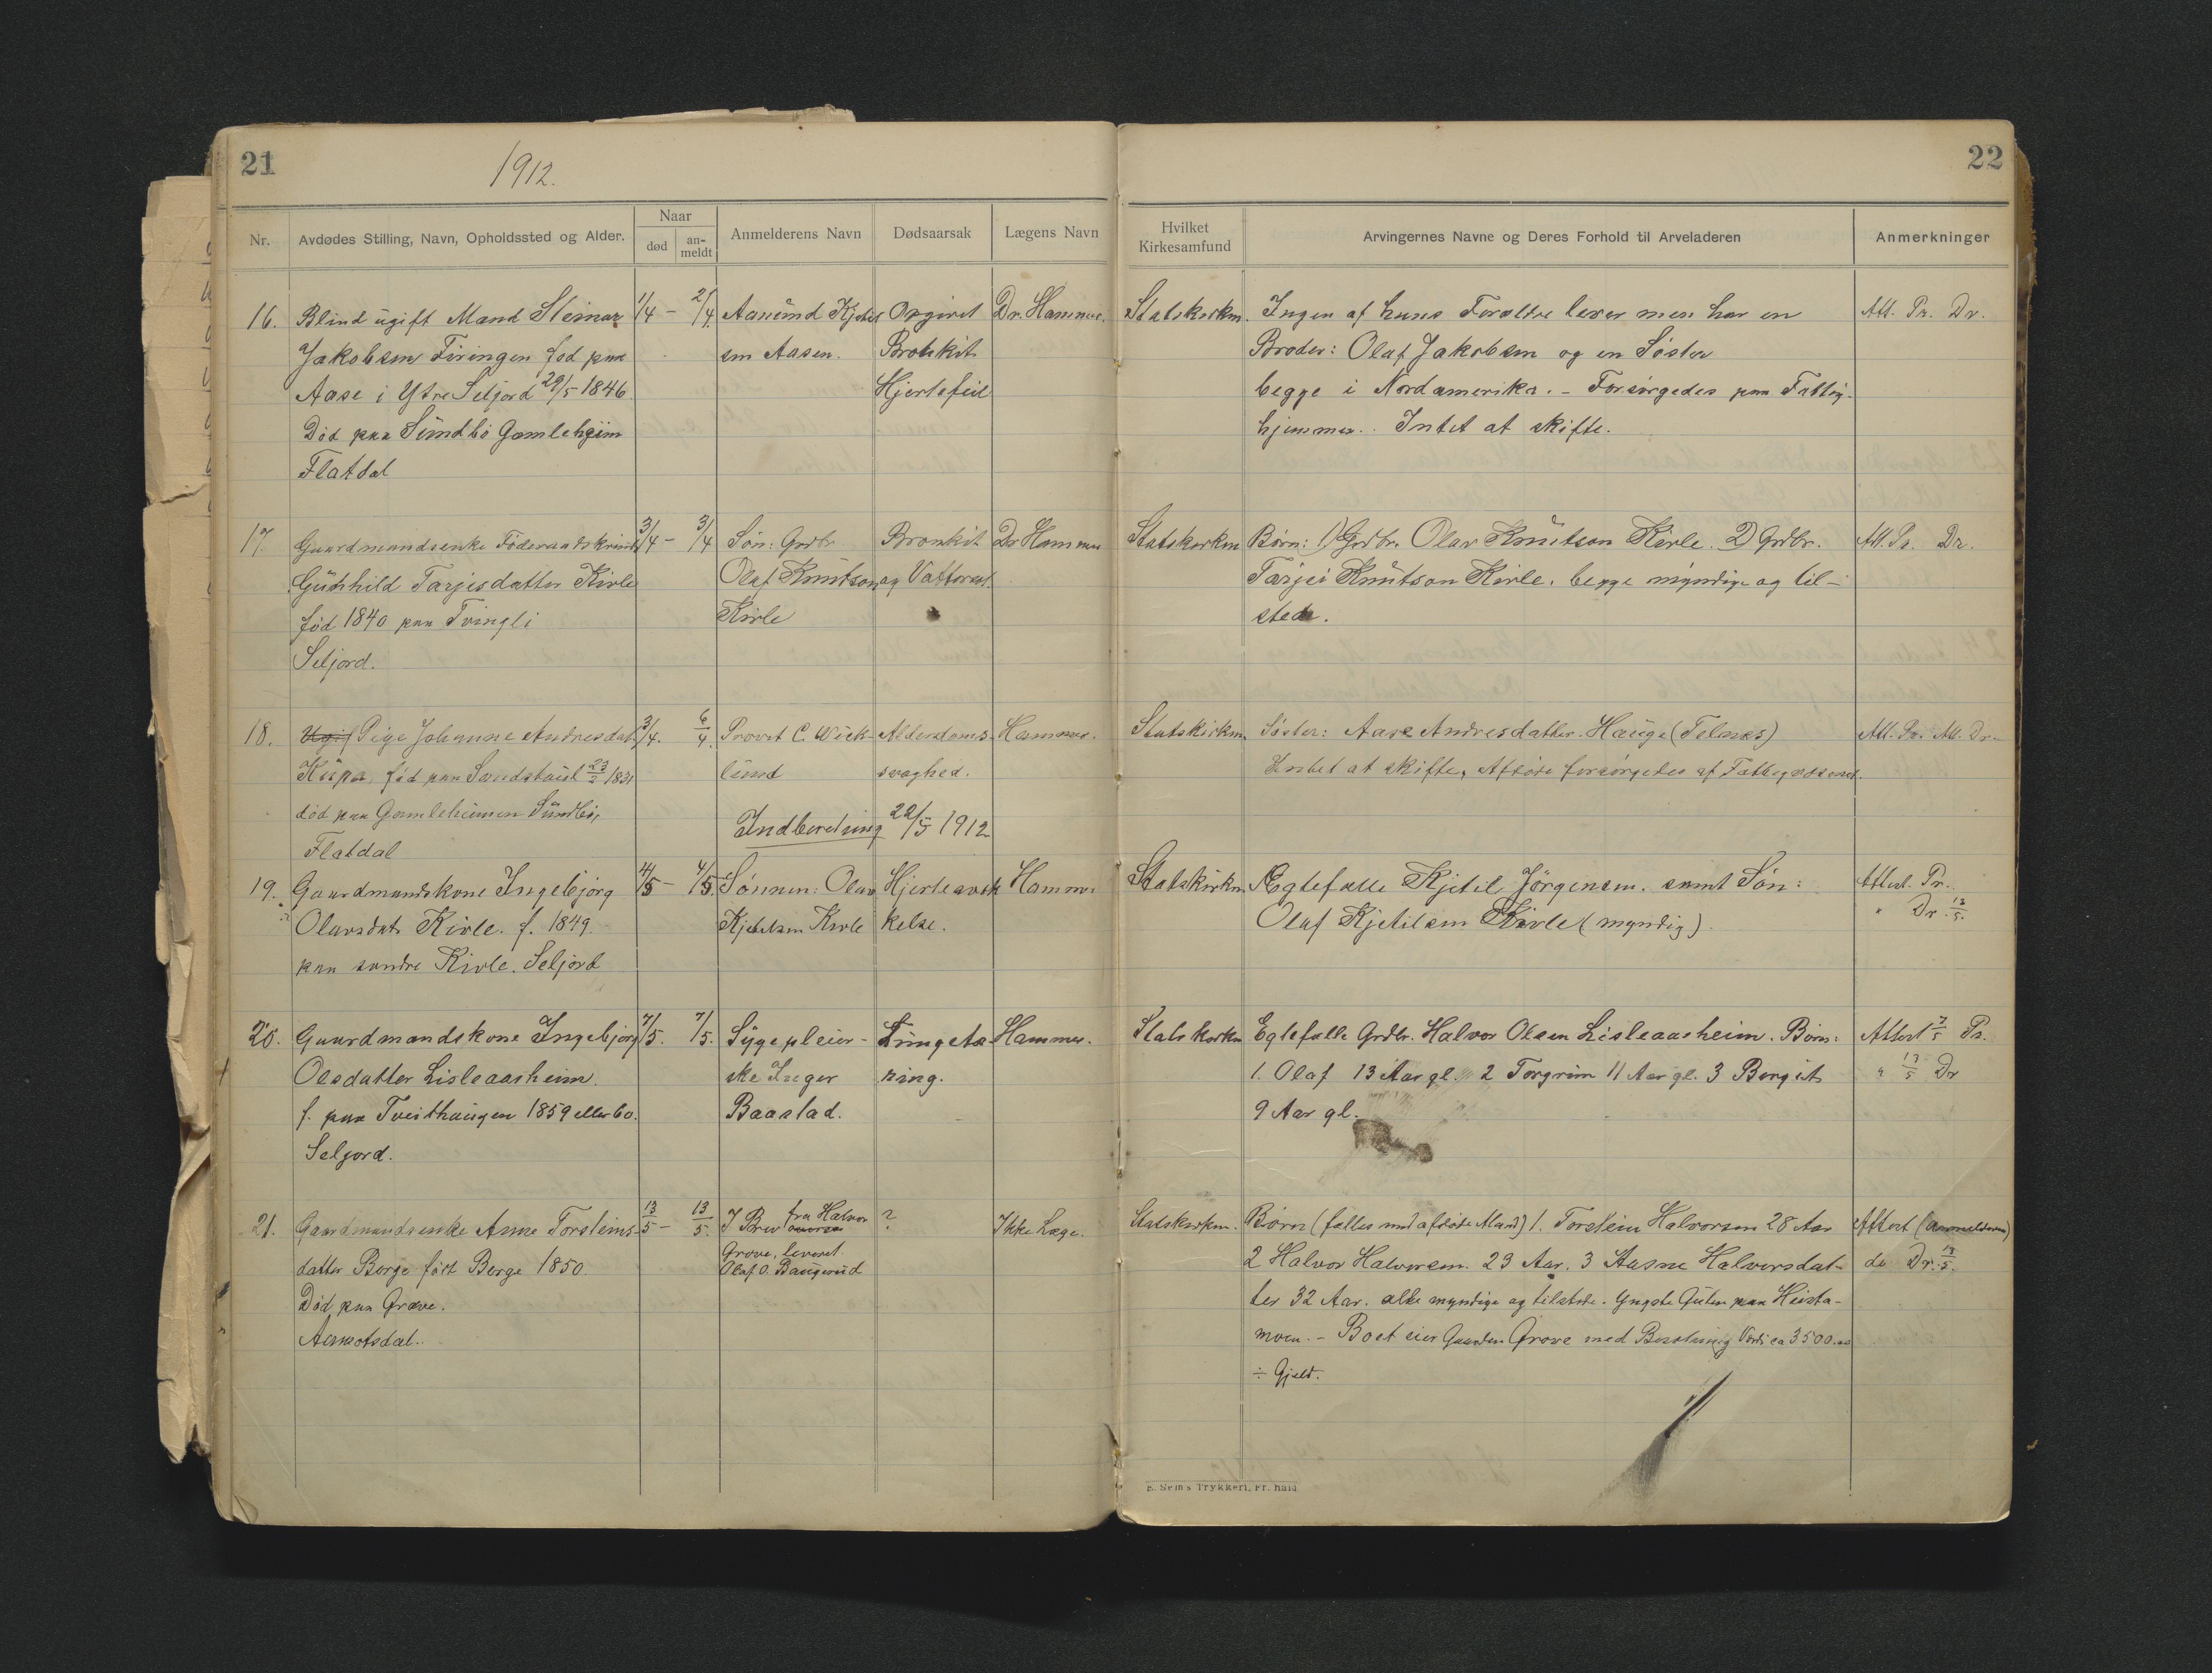 21
1912.
22
Nr.
Avdødes Stilling, Navn, Opholdssted og Alder.
Naar
død
an-
meldt
Anmelderens Navn
Dødsaarsak
Lægens Navn
Hvilket
Kirkesamfund
Arvingernes Navne og Deres Forhold til Arveladeren
Anmerkninger
16. Blind ugift Mand Steinar 1/4 – 2/4. Aanund Kjetil Dr. Hammer. Statskirken. Ingen af hans Forældre lever men har en Att. Pr. Dr.
Jakobsen Firingen fød paa sen Aasen. Bronkit Broder: Olaf Jakobsen og en Søster
Aase i Ytre Seljord 29/5 1846. Hjertefeil begge i Nordamerika. – Forsørgedes paa Fattig-
Død paa Sundbø Gamleheim hjemmer. Intet at skifte.
Flatdal
17. Gaardmandsenke Føderaadskvinde 3/4 – 3/4 Søn: Grdbr. Bronkit Dr Hammer Statskirken Børn: 1) Grdbr. Olav Knutson Kivle. 2) Grdbr. Att. Pr. Dr.
Gunhild Tarjeisdatter Kivle Olaf Knutson og Vattersot. Tarjei Knutson Kivle. begge myndige og til-
fød 1840 paa Tvingli Kivle stede.
Seljord.
18. Ugift Pige Johanne Andresdat. 3/4. 6/4. Provst C. Wick- Alderdoms- Hammer. Statskirken Søster: Aase Andresdatter Hauge (Telnæs) Att. Pr. Att. Dr.
fød paa 23/2 1831 lund svaghed. Intet at skifte, Afdøde forsørgedes af Fattigvæsenet.
død paa Gamleheimen Sundbø,
Indberetning 22/5 1912
Flatdal
19. Gaardmandskone Ingebjørg 4/5 – 4/5. Sønnen: Olav Hjerteavsk Hammer Statskirken Ægtefælle Kjetil Jørgensen. samt Søn: Attest. Pr.
Olavsdat. Kivle. f. 1849. Kjetilsen Kivle kelse. Olaf Kjetilsen Kivle (myndig). " Dr. 13/5.
paa søndre Kivle. Seljord
20. Gaardmandskone Ingebjørg 7/5. 7/5. Sygepleier- Lungetæ- Hammer. Statskirken Egtefælle Grdbr. Halvor Olsen Lisleaasheim. Børn: Attest 7/5 Pr.
Olsdatter Lisleaasheim. ske Inger ring. 1. Olaf 13 Aar gl. 2 Torgrim 11 Aar gl. 3 Bergit " 13/5 Dr
f. paa Tveithaugen 1859 eller 60. Baastad. 9 Aar gl.
Seljord.
21. Gaardmandsenke Anne Torsteins- 13/5 – 13/5. I Brev fra Halvor ? Ikke Læge. Statskirken. Børn (fælles med afdøde Mand) 1. Torstein Halvorsen 28 Aar Attest (anmelderen)
datter Berge født Berge 1850. Grave, leveret 2 Halvor Halvorsen. 23 Aar. 3 Aasne Halvorsdat- do Dr. 13/5.
Olaf O. Baugerud
Død paa Grave. ter 32 Aar. alle myndige og tilstede. Yngste Guten paa Heista-
Aamotsdal. moen. – Boet eier Gaarden Grave med Besætning Værdi ca 3500.00
÷ Gjeld.
E. Sem's Trykkeri, Fr. hald